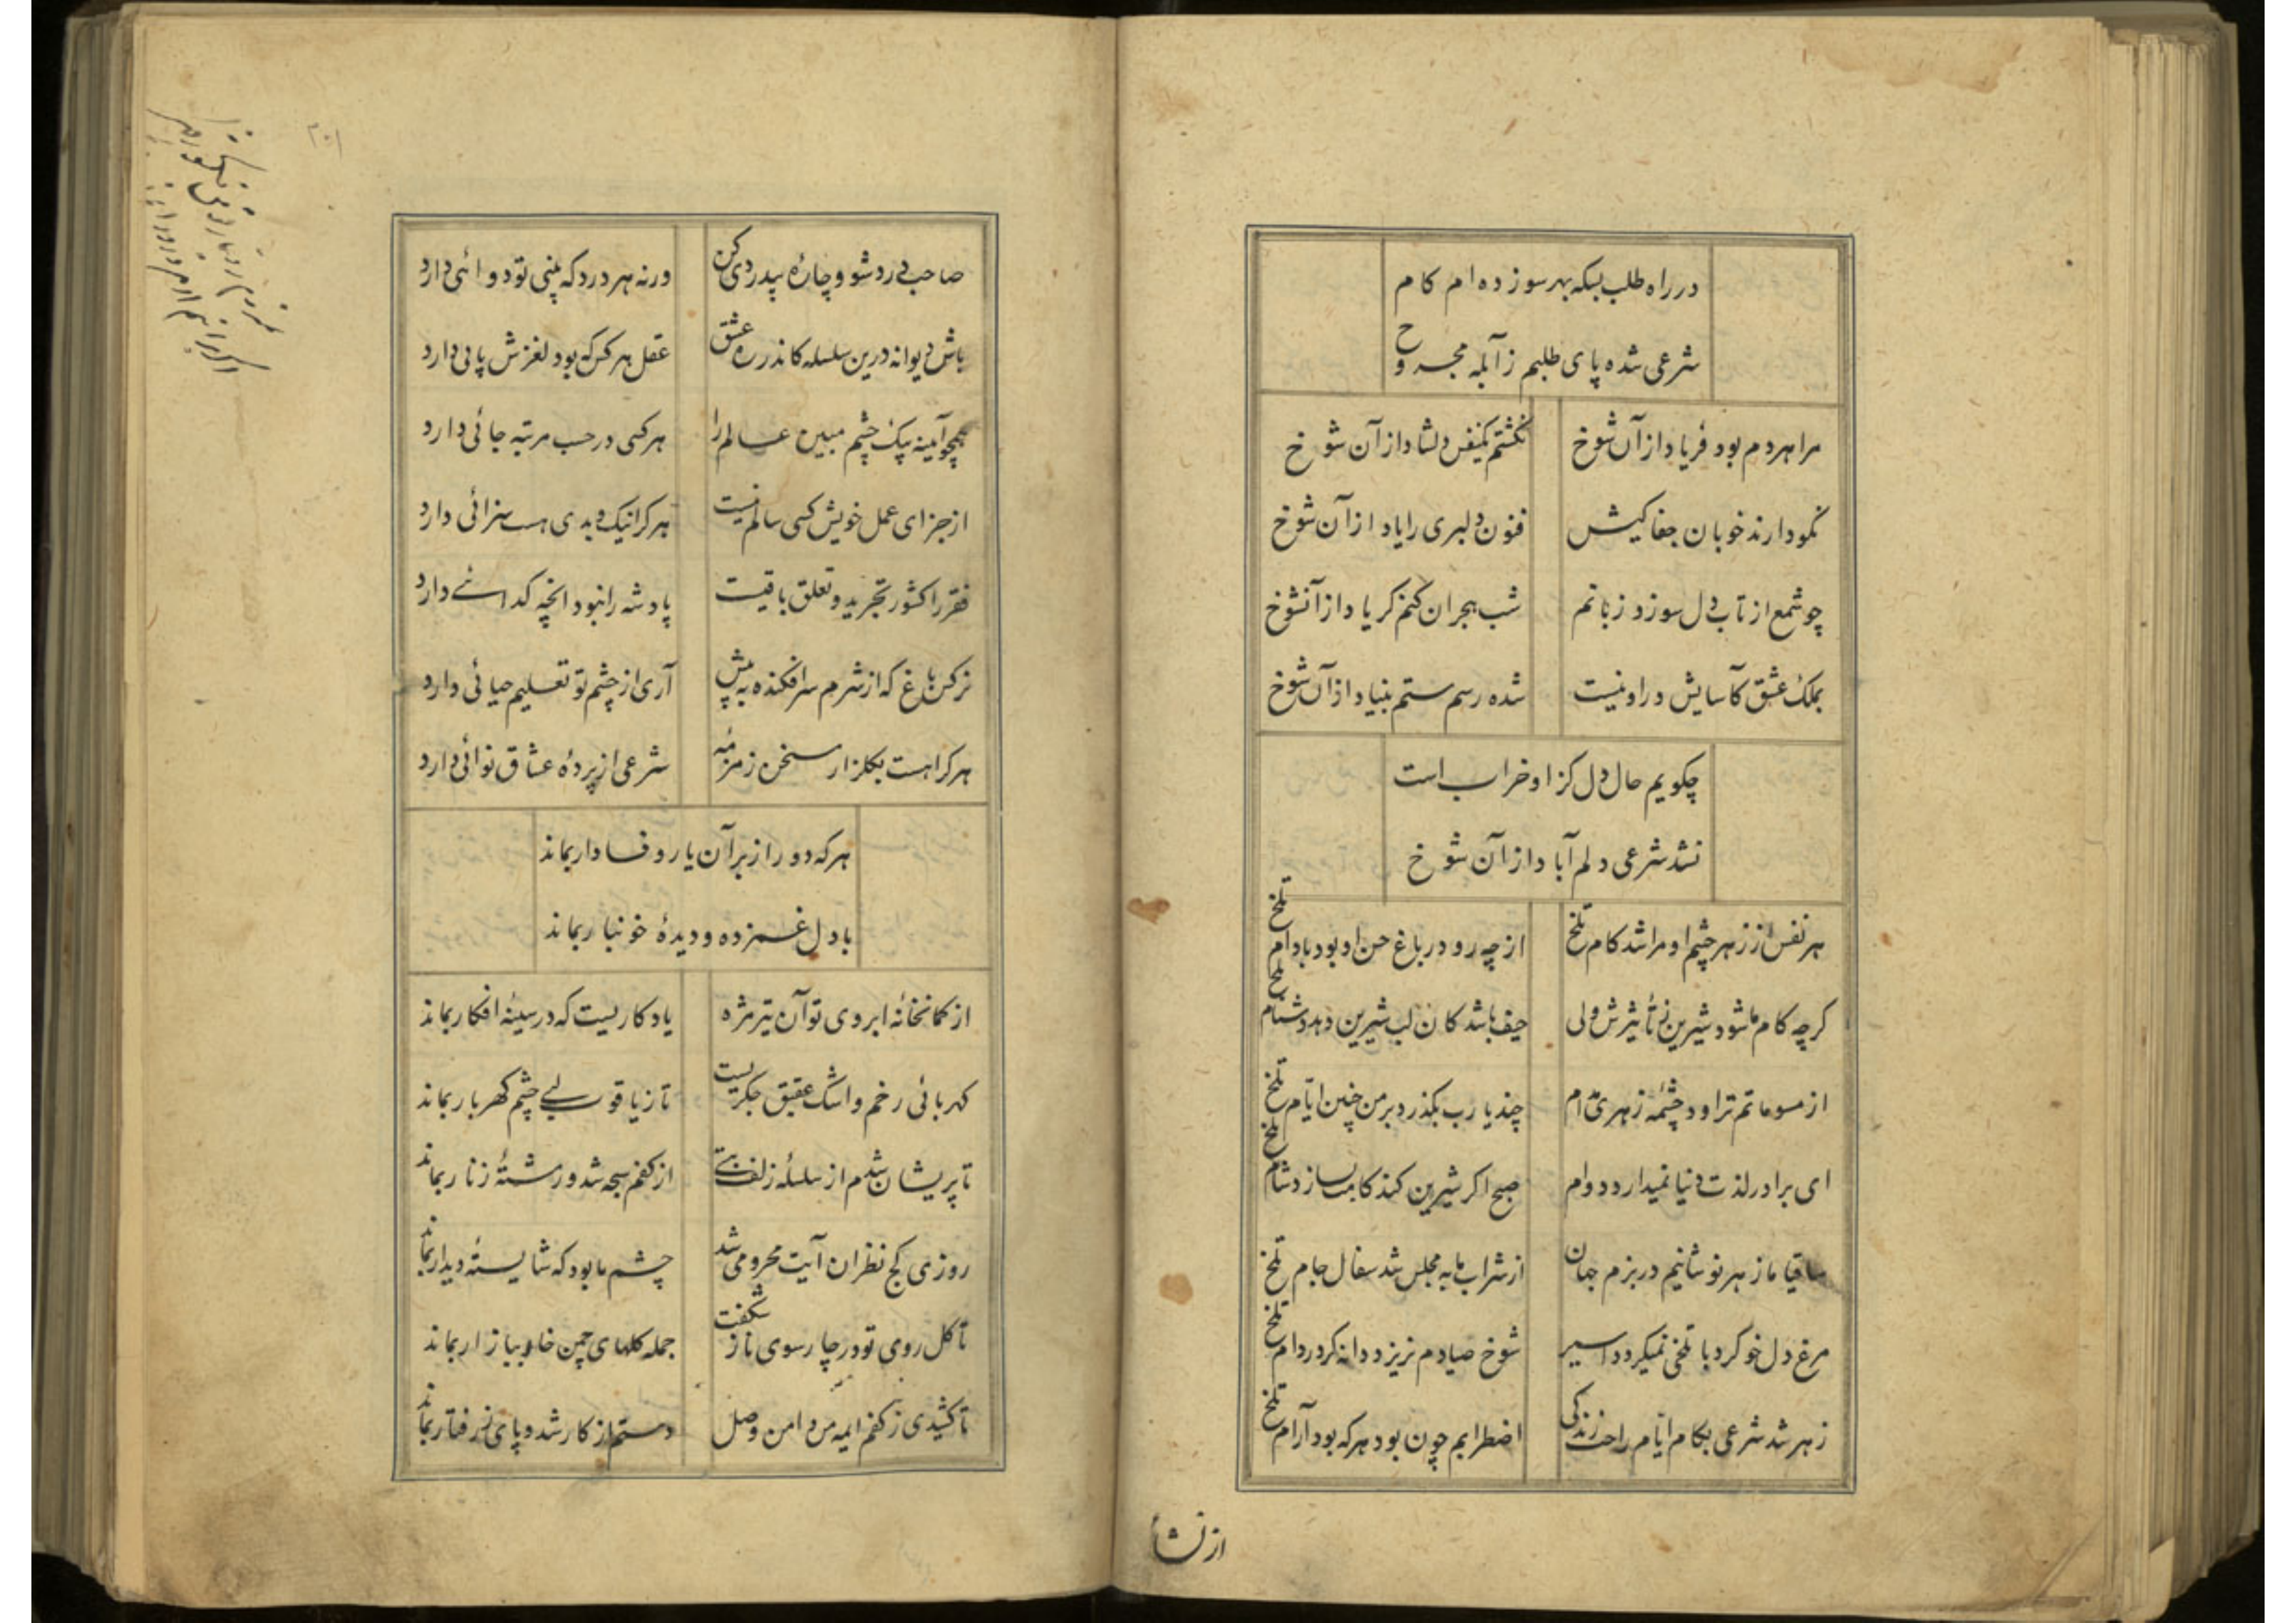 در راه طلب بسکه بهر سو زده ام کام
شرعی شده پای طلبم ز آبله مجروح
مرا هر دم بود فریاد از آن شوخ نکشتم یکنفس دلشاد از آن شوخ
نمودارند خوبان جفا کیش فنون دلبری را یاد از آن شوخ
چو شمع از تاب دل سوزد زبانم شب هجران کنم کر یاد از آنشوخ
بملک عشق کآسایش در او نیست شده رسم ستم بنیاد از آن شوخ
چکویم حال دل کز او خراب است
نشد شرعی دلم آباد از آن شوخ
هر نفس از زهر چشم او مرا شد کام تلخ از چه رو در باغ حسن او بود بادام تلخ
کرچه کام ما شود شیرین ز تأثیرش ولی حیف باشد کان لب شیرین دهد دشنام تلخ
از مسوماتم تراود چشمه زهری مدام چند یا رب بکذرد بر من چنین ایام تلخ
ای برادر لذت دنیا نمیدارد دوام صبح اکر شیرین کند کامت بسازد شام تلخ
ساقیا ما زهر نوشانیم در بزم جهان از شراب ما به مجلس شد سفال جام تلخ
مرغ دل خو کرد با تلخی نمیکردد اسیر شوخ صیادم نریزد دانه کرد دام تلخ
زهر شد شرعی بکام ایام راحت زندکی اضطرابم چون بود هر که بود آرام تلخ
از نشأ
صاحب درد شو و چارهٔ بیدردی کن ورنه هر درد که بینی تو دوائی دارد
باش دیوانه درین سلسله کاندر ره عشق عقل هر کس که بود لغزش پائی دارد
همچو آیینه بیک چشم مبین عالم را هر کسی در حسب مرتبه جائی دارد
از جزای عمل خویش کسی سالم نیست هر کرا نیک و بدی هست سزائی دارد
فقر را کشور تجرید و تعلق باقیست پادشه را نبود انچه کدائی دارد
نرکس باغ که از شرم سرافکنده به پیش آری از چشم تو تعلیم حیائی دارد
هر کرا هست بکلزار سخن زمزمهٔ شرعی از پردهٔ عشاق نوائی دارد
هر که دور از بر آن یار وفادار بماند
با دل غمزده و دیدهٔ خونبار بماند
از کمانخانهٔ ابروی تو آن تیر مژه یادکاریست که در سینهٔ افکار بماند
کهربائی رخم و اشک عقیق جکریست تا ز یاقوت لبی چشم کهربار بماند
تا پریشان شدم از سلسلهٔ زلف بتی از کفم سبحه شد و رشتهٔ زنار بماند
روزی کج نظران آیت محرومی شد چشم ما بود که شایستهٔ دیدار بماند
تا کل روی تو در چارسوی ناز شکفت جمله کلهای چمن خار ببازار بماند
تا کشیدی ز کفم ایمه من دامن وصل دستم از کار شد و پای ز رفتار بماند